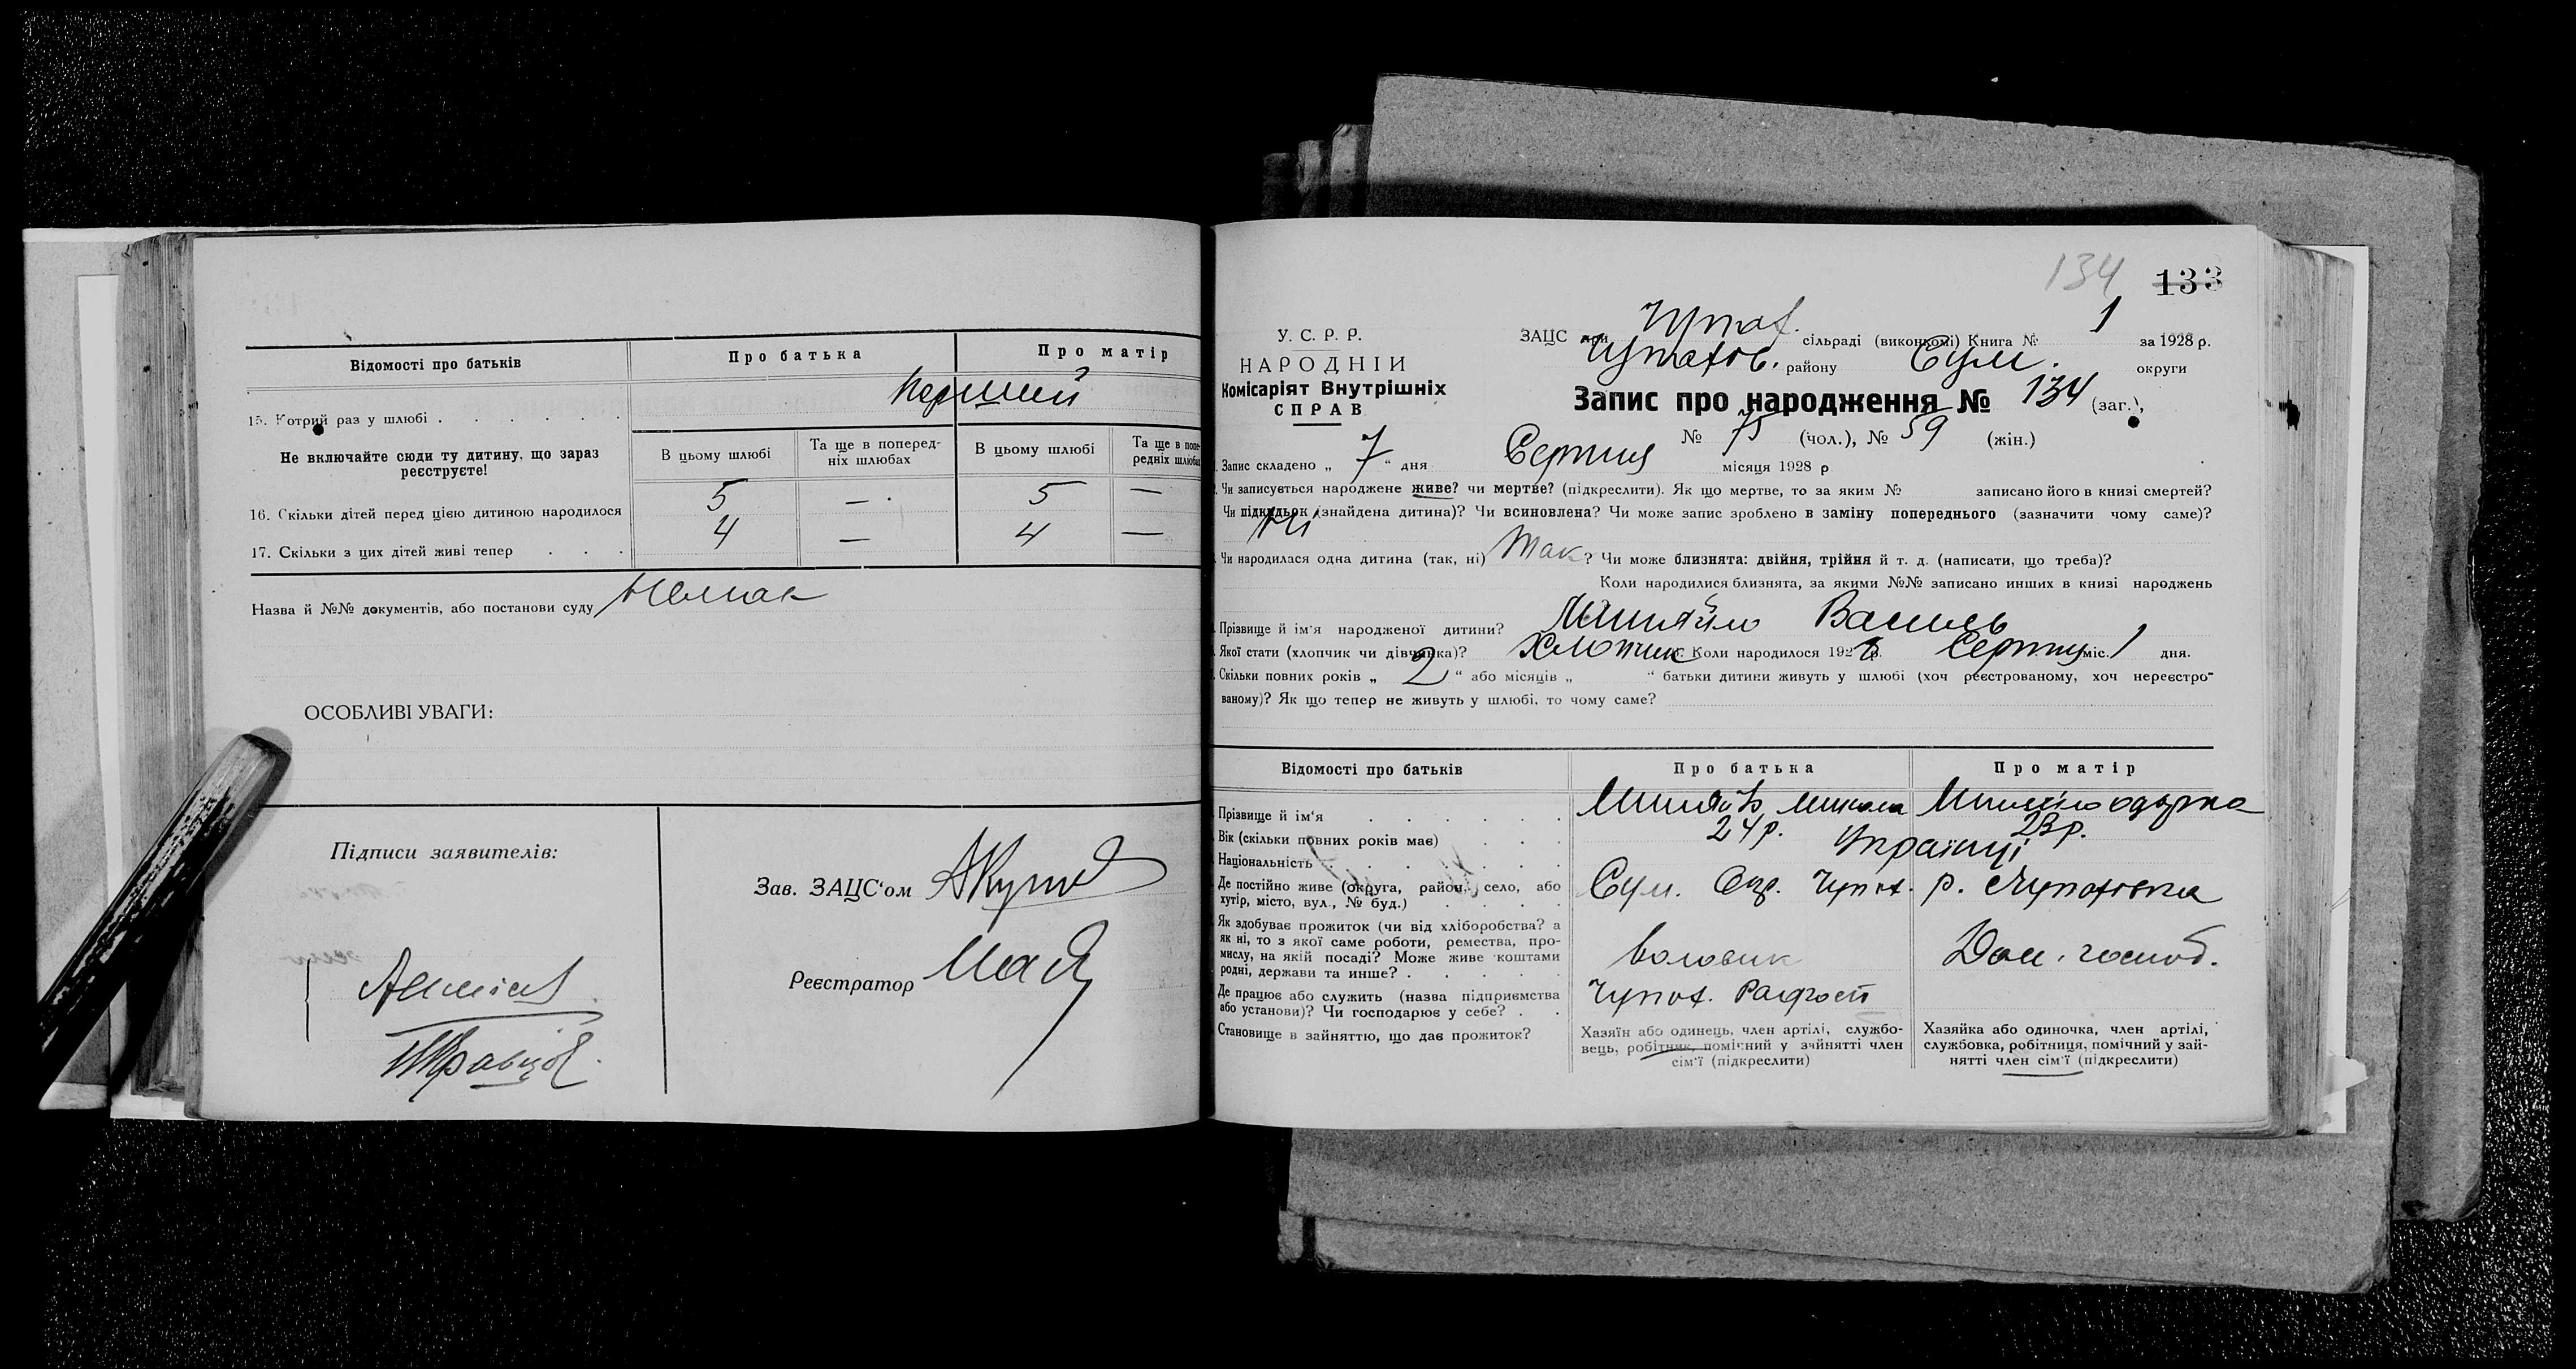 Відомості про батьків
Про батька
Про матір
15. Котрий раз у шлюбі . . . . .
перший
Не включайте сюди ту дитину, що зараз
реєструєте!
В цьому шлюбі
Та ще в поперед-
ніх шлюбах
В цьому шлюбі
Та ще в попе-
редніх шлюбах
16. Скільки дітей перед цією дитиною народилося
5 — 5 —
17. Скільки з цих дітей живі тепер . . .
4 — 4 —
Назва й №№ документів, або постанови суду
Немає
ОСОБЛИВІ УВАГИ:
Підписи заявителів:
Зав. ЗАЦС'ом
Реєстратор
134 133
У. С. Р. Р.
НАРОДНІЙ
Комісаріят Внутрішніх
СПРАВ
ЗАЦС при Чупах. сільраді (виконкомі) Книга № 1 за 1928 р.
Чупахов. району Сум. округи
Запис про народження № 134 (заг.),
№ 75 (чол.), № 59 (жін.)
Запис складено „ 7 “ дня Серпня місяця 1928 р
Чи записується народжене живе? чи мертве? (підкреслити). Як що мертве, то за яким № записано його в книзі смертей?
Чи підкидьок (знайдена дитина)? Чи всиновлена? Чи може запис зроблено в заміну попереднього (зазначити чому саме)?
Ні
Чи народилася одна дитина (так, ні) Так ? Чи може близнята: двійня, трійня й т. д. (написати, що треба)?
Коли народилися близнята, за якими №№ записано инших в книзі народжень
Прізвище й ім'я народженої дитини? Василь
Якої стати (хлопчик чи дівчинка)? Хлопчик Коли народилося 1928 р. Серпня міс. 1 дня.
Скільки повних років „ 2 “ або місяців „ “ батьки дитини живуть у шлюбі (хоч реєстрованому, хоч нереєстро-
ваному)? Як що тепер не живуть у шлюбі, то чому саме?
Відомості про батьків
Про батька
Про матір
Прізвище й ім'я . . . . . .
Микола
Вік (скільки повних років має) . . .
24 р. 23 р.
Національність . . . . . . .
Українці
Де постійно живе (округа, район, село, або
хутір, місто, вул., № буд.) . . . .
Сум. Окр. Чупах. р. Чупаховка
Як здобуває прожиток (чи від хліборобства? а
як ні, то з якої саме роботи, ремества, про-
мислу, на якій посаді? Може живе коштами
родні, держави та инше? . . . . .
воловик
Дом. господ.
Де працює або служить (назва підприємства
або установи)? Чи господарює у себе? . .
Чупах. Радгосп
Становище в зайняттю, що дає прожиток?
Хазяїн або одинець, член артілі, службо-
вець, робітник, помічний у зайнятті член
сім'ї (підкреслити)
Хазяйка або одиночка, член артілі,
службовка, робітниця, помічний у зай-
нятті член сім'ї (підкреслити)